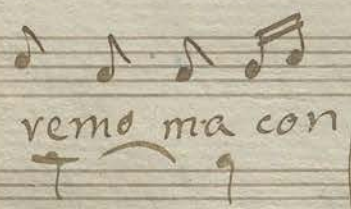 vemo ma con